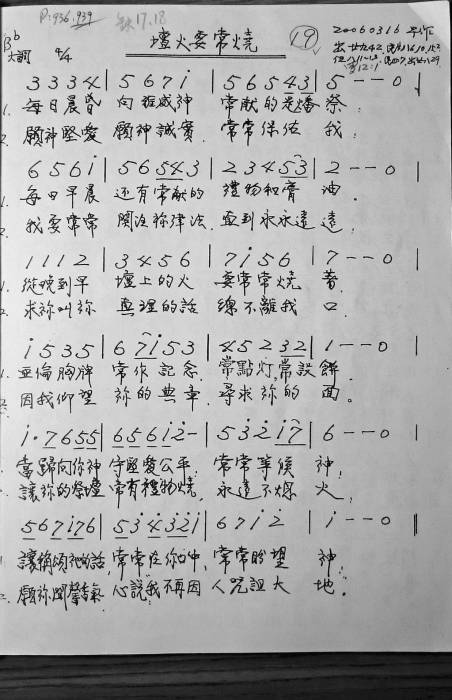 P:936,939
缺17,18
壇火要常燒
19
20060316
B♭大調 4/4
3 3 3 4 | 5 6 7 i | 5 6 5 4 3 | 5 - - 0 |
1. 每日晨昏 向 神 常獻的是燔祭;
2. 願神堅愛 願神誠實 常常保佑 我;
6 5 6 i | 5 6 5 4 3 | 2 3 4 5 3 | 2 - - 0 |
1. 每日早晨 還有常獻的 禮物和膏 油.
2. 我要常常 關注祢律法 直到永永遠遠;
1 1 1 2 | 3 4 5 6 | 7 i 5 6 | 7 - - 0 |
1. 從晚到早 壇上的火 要常常燒 著
2. 求祢叫祢 真理的話 總不離我 口
i 5 3 5 | 6 7 i 5 3 | 4 5 2 3 2 | 1 - - 0 |
1. 亞倫胸牌 常作記念, 常點灯,常設餅
2. 因我仰望 祢的典章, 尋求祢的 面。
i · 7 6 5 5 | 6 5 6 i 2 - | 5 3 2 i 7 | 6 - - 0 |
當歸向你神 守堅愛公平; 常常等候 神;
讓祢的祭壇 常有禮物燒, 永遠不熄 火;
5 6 7 i 7 6 | 5 3 4 3 2 i | 6 7 i 2 | i - - 0 ‖
1. 讓稱頌祂的話,常常在你口中, 常常盼望 神;
2. 願祢聞馨氣 心說我不再因 人咒詛大 地.